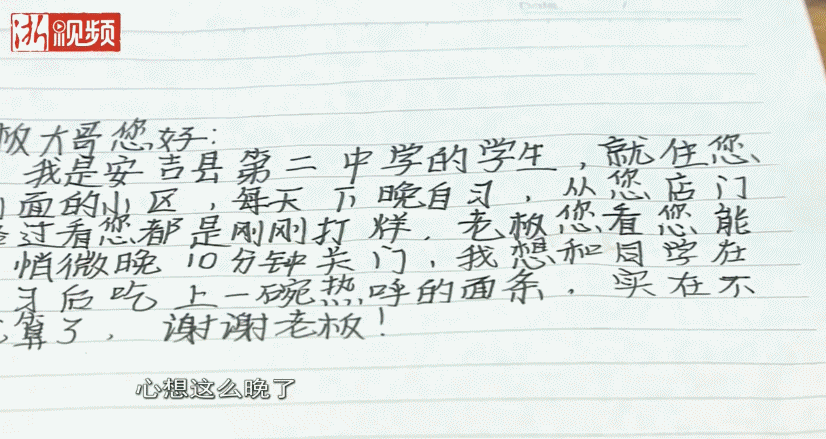 浙视频
板大哥您好:
我是安吉县第二中学的学生,就住您
面的小区,每天下晚自习,从您店门
过看您都是刚刚打烊,老板您看您能
悄微晚10分钟关门,我想和同学在
习后吃上一碗热呼的面条,实在不
算了,谢谢老板!
心想这么晚了